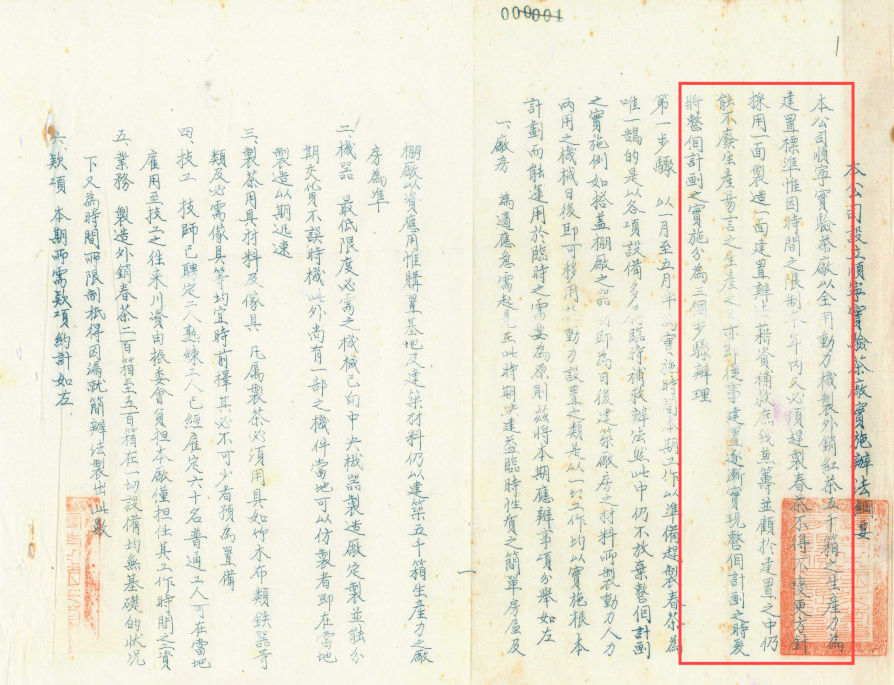 000001
1
本公司設立順寧實驗茶廠實施辦法綱要
本公司順寧實驗茶廠以全用動力機製外銷紅茶五千箱之生產力為
建置標準惟因時間之限制本年內又必須趕製春茶不得不變更方針
採用一面製造一面建置辦法藉資補救庶幾兼籌並顧於建置之中仍
能不廢生產易言之生產之 亦即從事建置逐漸實現整個計劃之時
將整個計劃之實施分為三個步驟辦理
第一步驟 以一月至五月半為實施時間本期工作以準備趕製春茶為
唯一鵠的是以各項設備多 臨時補救辦法然此中仍不放棄整個計劃
之實施例如搭蓋棚廠之器材即為日後建築廠房之材料所製動力人力
兩用之機械日後即可移用於動力設置之類是以一切工作均以實施根本
計劃而能運用於臨時之需要為原則茲將本期應辦事項分舉如左
一、廠房 為適應急需起見在此時期先建益臨時性質之簡單房屋及
一
棚廠以資應用惟購置基地及建築材料仍以建築五千箱生產力之廠
房為準
二、機器 最低限度必需之機械已向中央機器製造廠定製並能分
期交貨不誤時機此外尚有一部之機件當地可以仿製者即在當地
製造以期迅速
三、製茶用具材料及傢具 凡屬製茶必須用具如竹木布類鉄器等
類及必需傢具等均宜時前擇其必不可少者預為置備
四、技工 技師已聘定二人熟練工人已經雇定六十名普通工人可在當地
雇用至技工之往來川資由振委會負担本廠僅担任其工作時間之工資
五、業務 製造外銷春茶二百箱至五百箱在一切設備均無基礎的狀況
下又為時間所限制祇得因漏就簡辦法製出此數
六、欵項 本期所需欵項約計如左